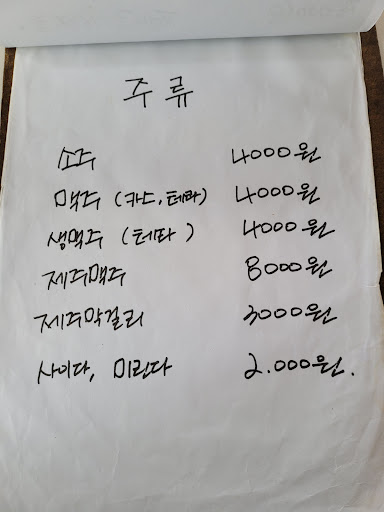 주류
소주 4000원
맥주 (카스, 테라) 4000원
생맥주 (테라) 4000원
제주맥주 8000원
제주막걸리 3000원
사이다, 미린다 2.000원.